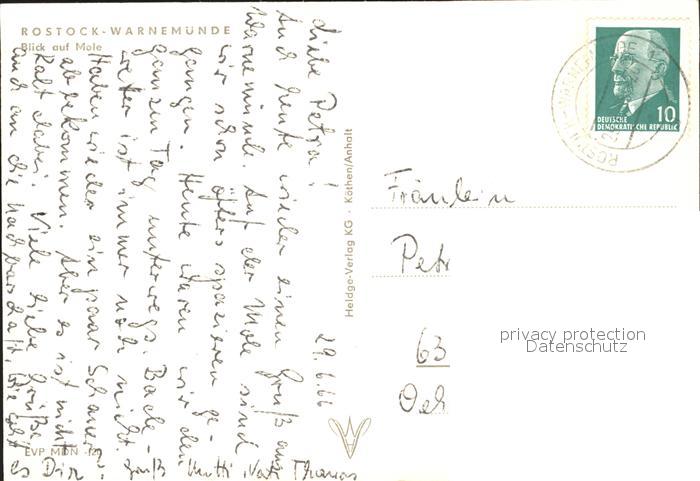 ROSTOCK-WARNEMÜNDE
Blick auf Mole
Liebe Petra!
Auch heute wieder einen Gruß aus
Warnemünde. Auf der Mole sind
wir schon öfters spazieren ge-
gangen. Heute waren wir den
ganzen Tag unterwegs. Bade-
wetter ist immer noch nicht.
Haben wieder ein paar Schauer
abbekommen. Aber es ist nicht
kalt dabei. Viele liebe Grüße
auch an die Nachbarschaft. Wie geht
es Dir?
Gruß Mutti, Vati Thomas
29.6.66
EVP MDN -,20
Heldge-Verlag KG · Köthen/Anhalt
DEUTSCHE
DEMOKRATISCHE REPUBLIK
10
Fräulein
Petr
63
privacy protection
Datenschutz